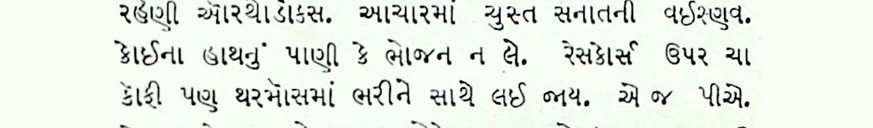 રહેણી ઑરથોડોકસ. આચારમાં ચુસ્ત સનાતની વઈશ્ણવ.
કોઈના હાથનું પાણી કે ભોજન ન લે. રેસકોર્સ ઉપર ચા
કૉફી પણ થરમૉસમાં ભરીને સાથે લઈ જાય. એ જ પીએ.